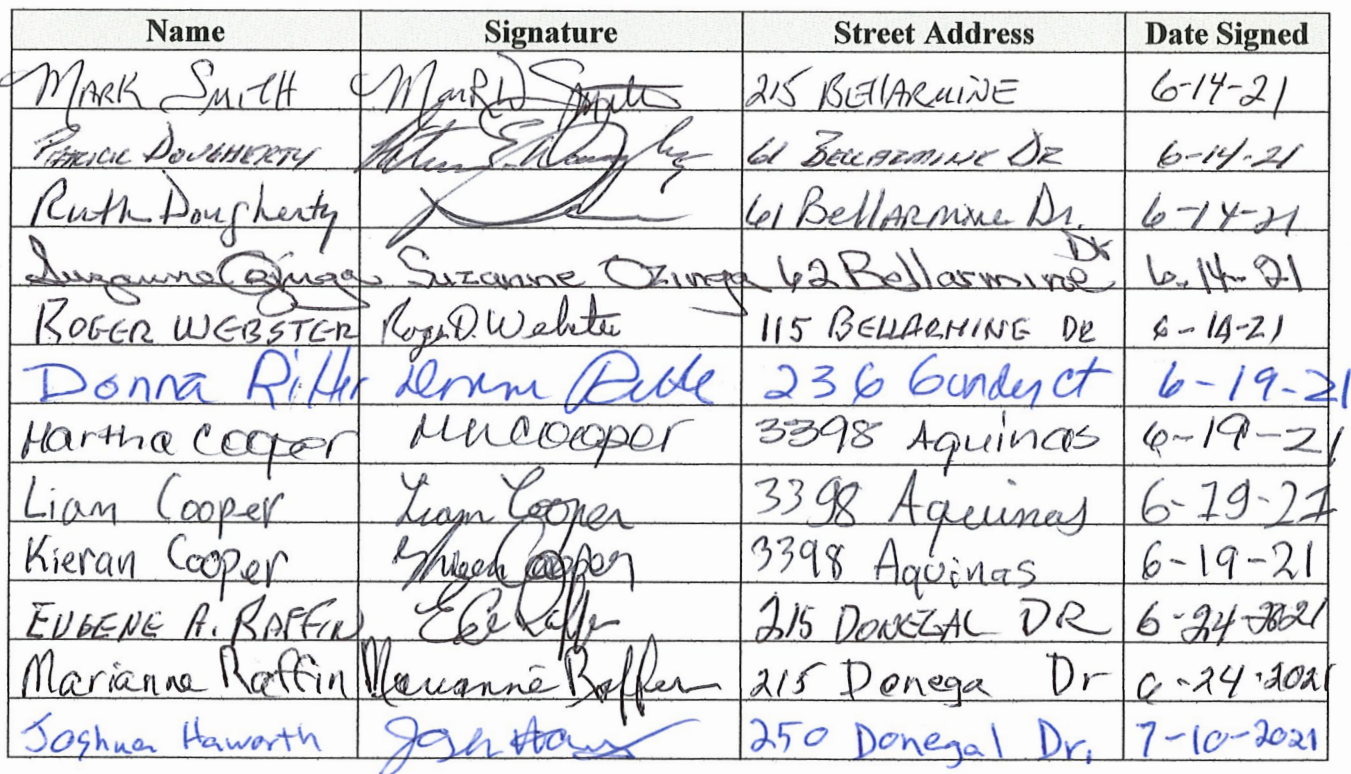 Name Signature Street Address Date Signed
MARK SMITH Mark D Smith 215 BELLARMINE 6-14-21
PATRICK DOUGHERTY 61 BELLARMINE DR 6-14-21
Ruth Dougherty 61 Bellarmine Dr. 6-14-21
Suzanne Ozinga Suzanne Ozinga 62 Bellarmine Dr 6-14-21
ROGER WEBSTER Roger D. Webster 115 BELLARMINE DR 6-14-21
Donna Ritter Donna 236 Ct 6-19-21
Martha Cooper MM Cooper 3398 Aquinas 6-19-21
Liam Cooper Liam Cooper 3398 Aquinas 6-19-21
Kieran Cooper Kieran Cooper 3398 Aquinas 6-19-21
EUGENE A. RAFFIN 215 DONEGAL DR 6-24-2021
Marianne Raffin Marianne Raffin 215 Donega Dr 6-24-2021
Joshua Haworth Josh Haw 250 Donegal Dr. 7-10-2021